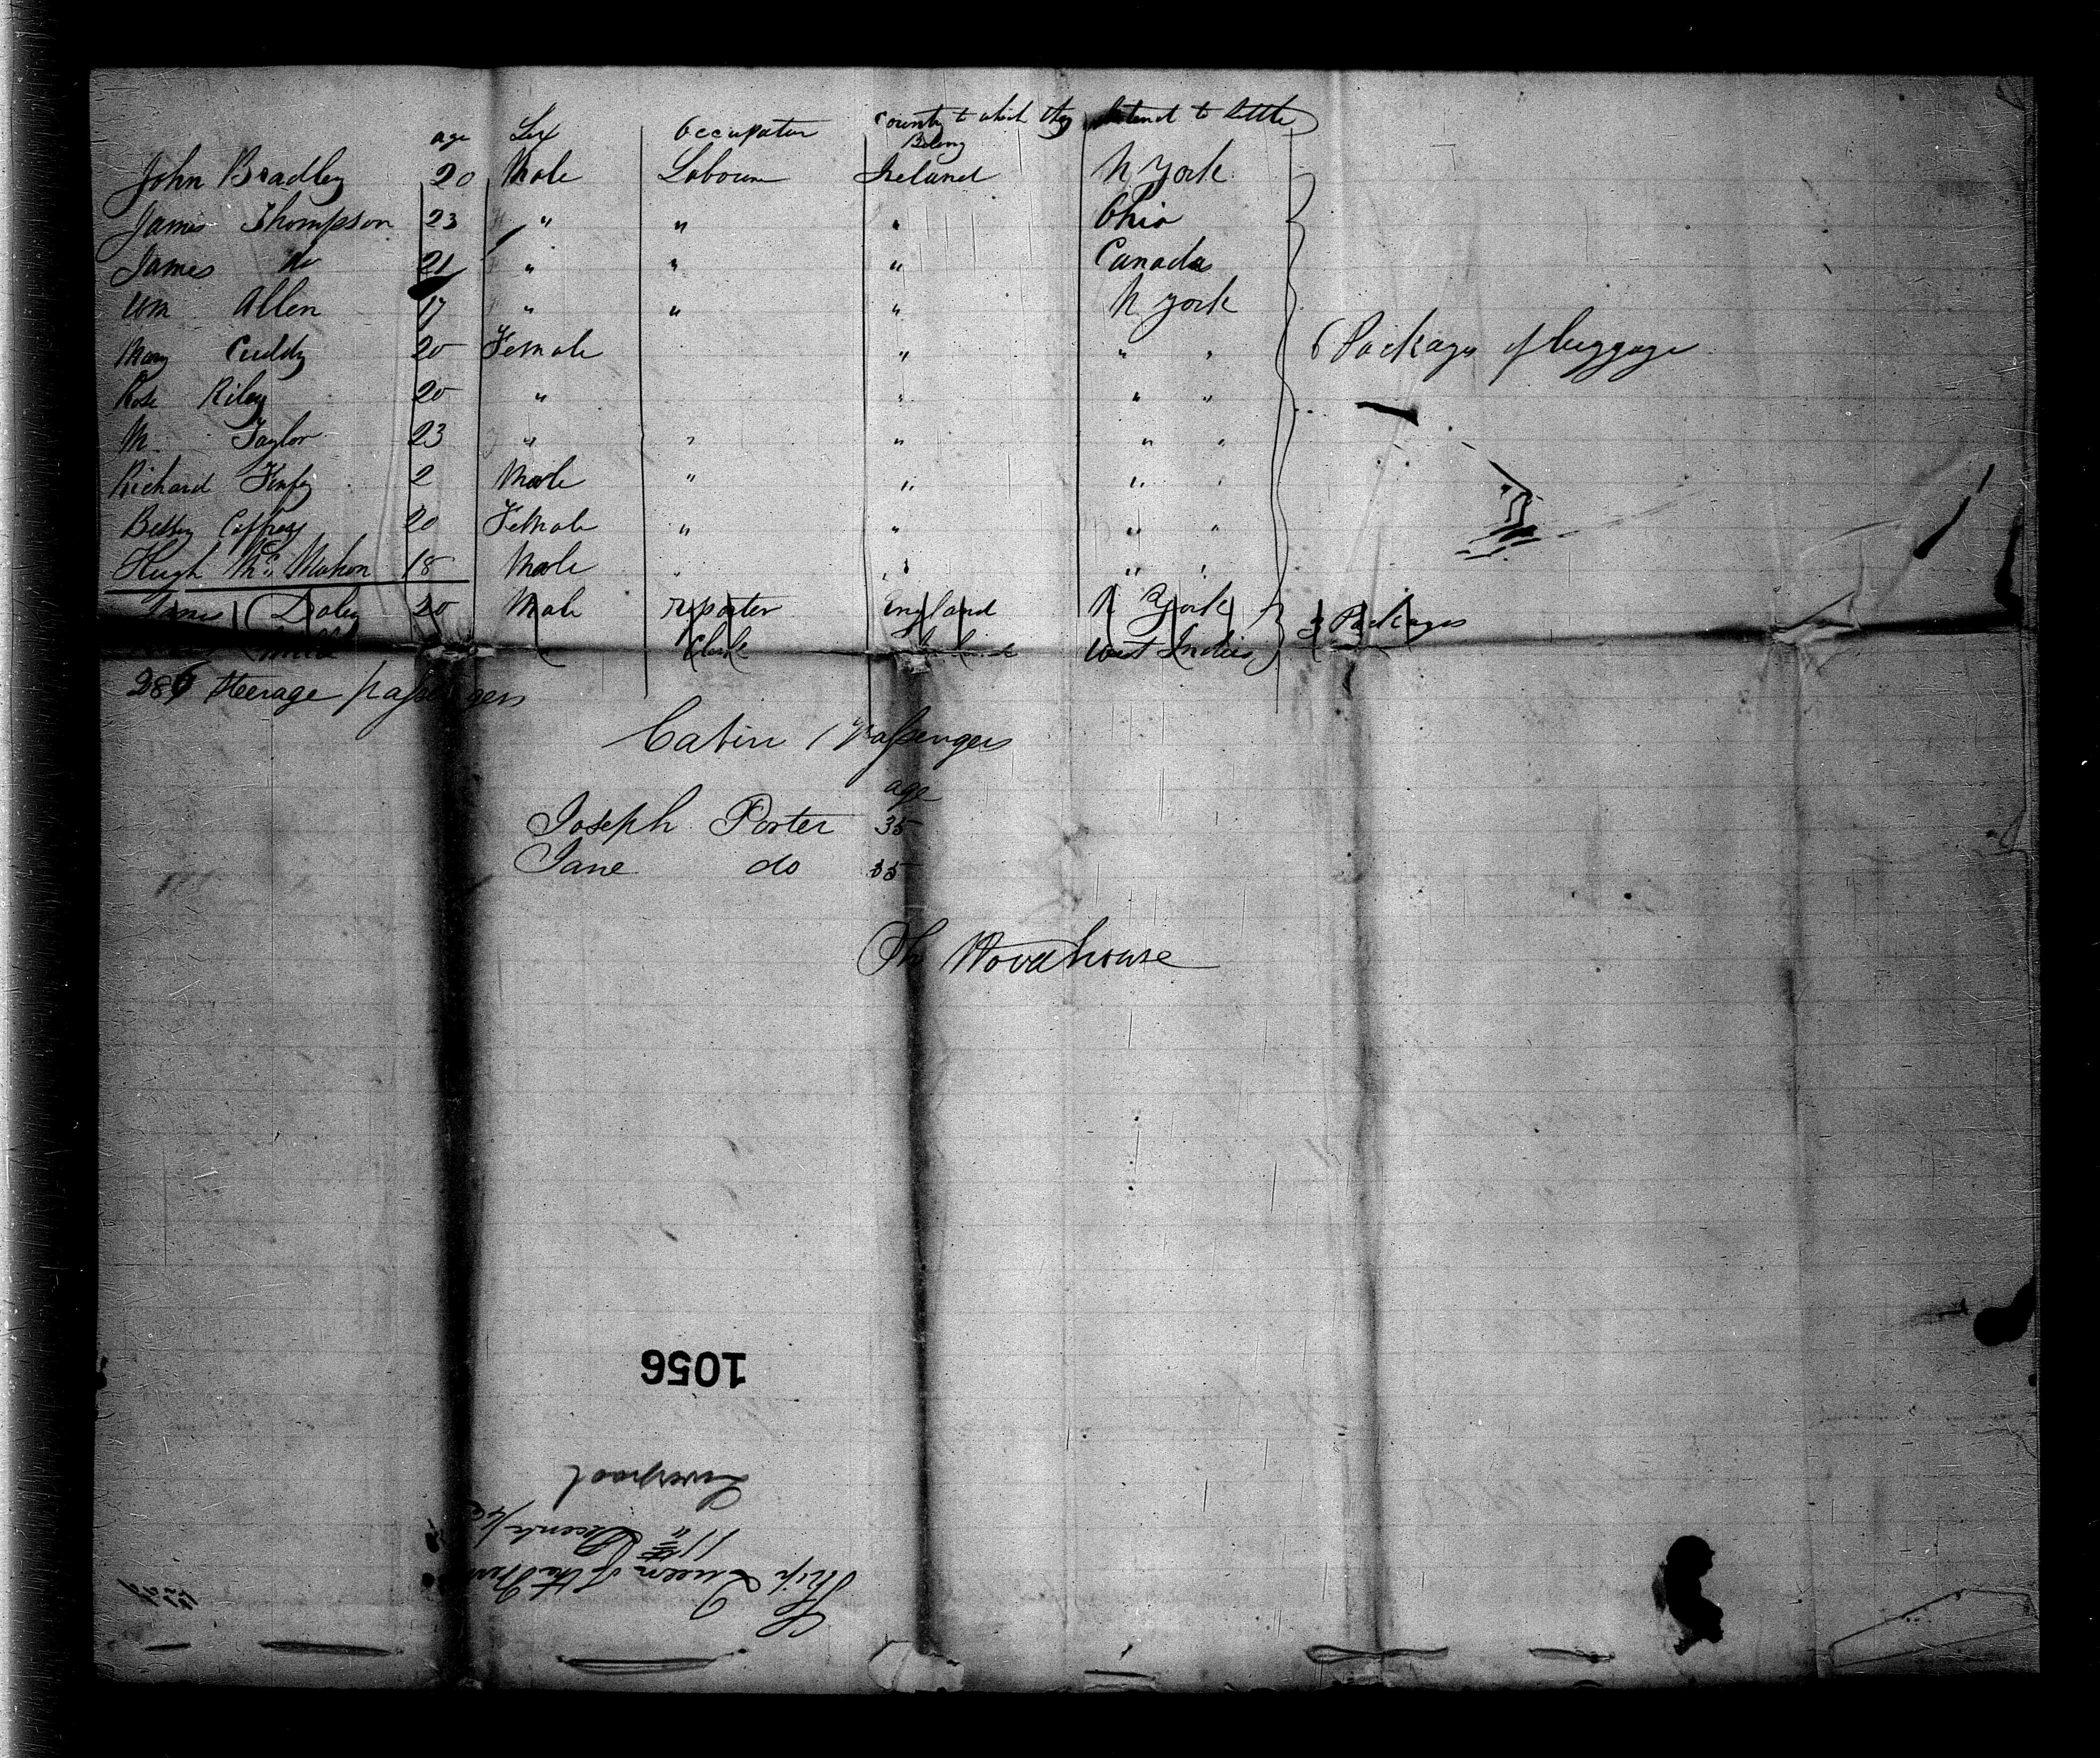 age Sex Occupation Country to which they Intend to Settle
Belong
John Bradley 20 Male Labourer Ireland N York
James Thompson 23 " " " Ohio
James do 21 " " " Canada
Wm Allen 17 " " " N York
Mary Cuddy 20 Female " " " 6 Packages of luggage
Rose Riley 20 " " " "
M Taylor 23 " " " " "
Richard 2 Male " " " "
Betsy Caffrey 20 Female " " " "
Hugh Mc Mahon 18 Male " " " "
James Daley 20 Male reporter England N York 3 Packages
" Clark West Indies
286 Steerage passengers
Cabin Passengers
age
Joseph Porter 35
Jane do 35
Th Woodhouse
1056
Ship Queen of the
11 December
Liverpool